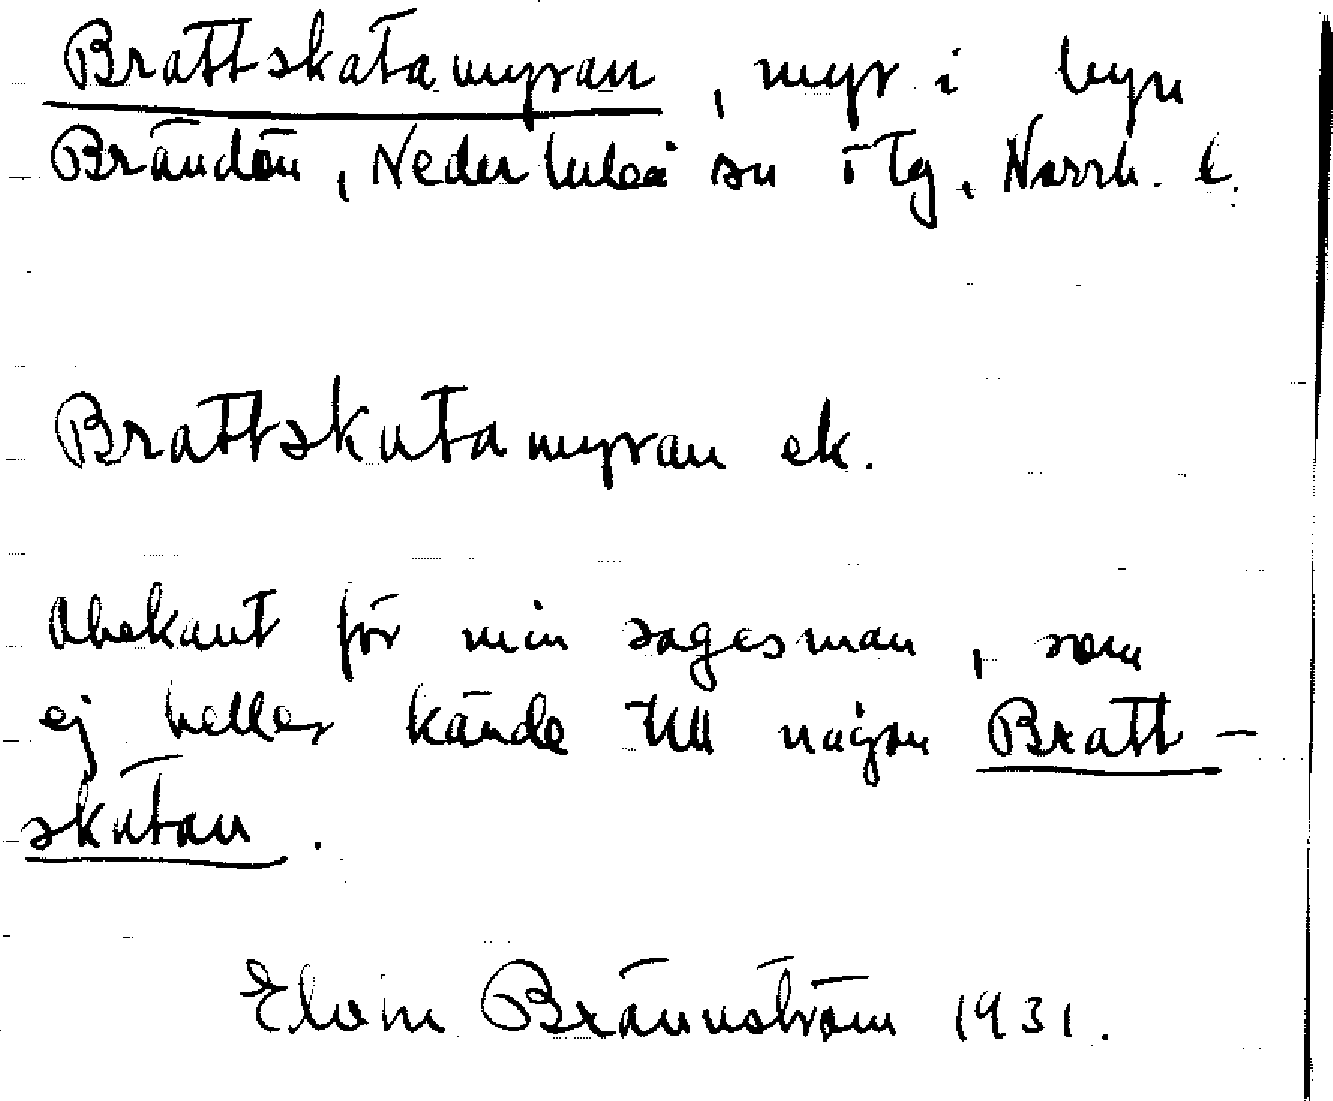 Brattskatamyran, myr i byn
Brändön, Nederluleå sn ö tg, Norrb. l.
Brattskatamyran ek.
Obekant för min sagesman, som
ej heller kände till någon Bratt-
skatan.
Elvin Brännström 1931.